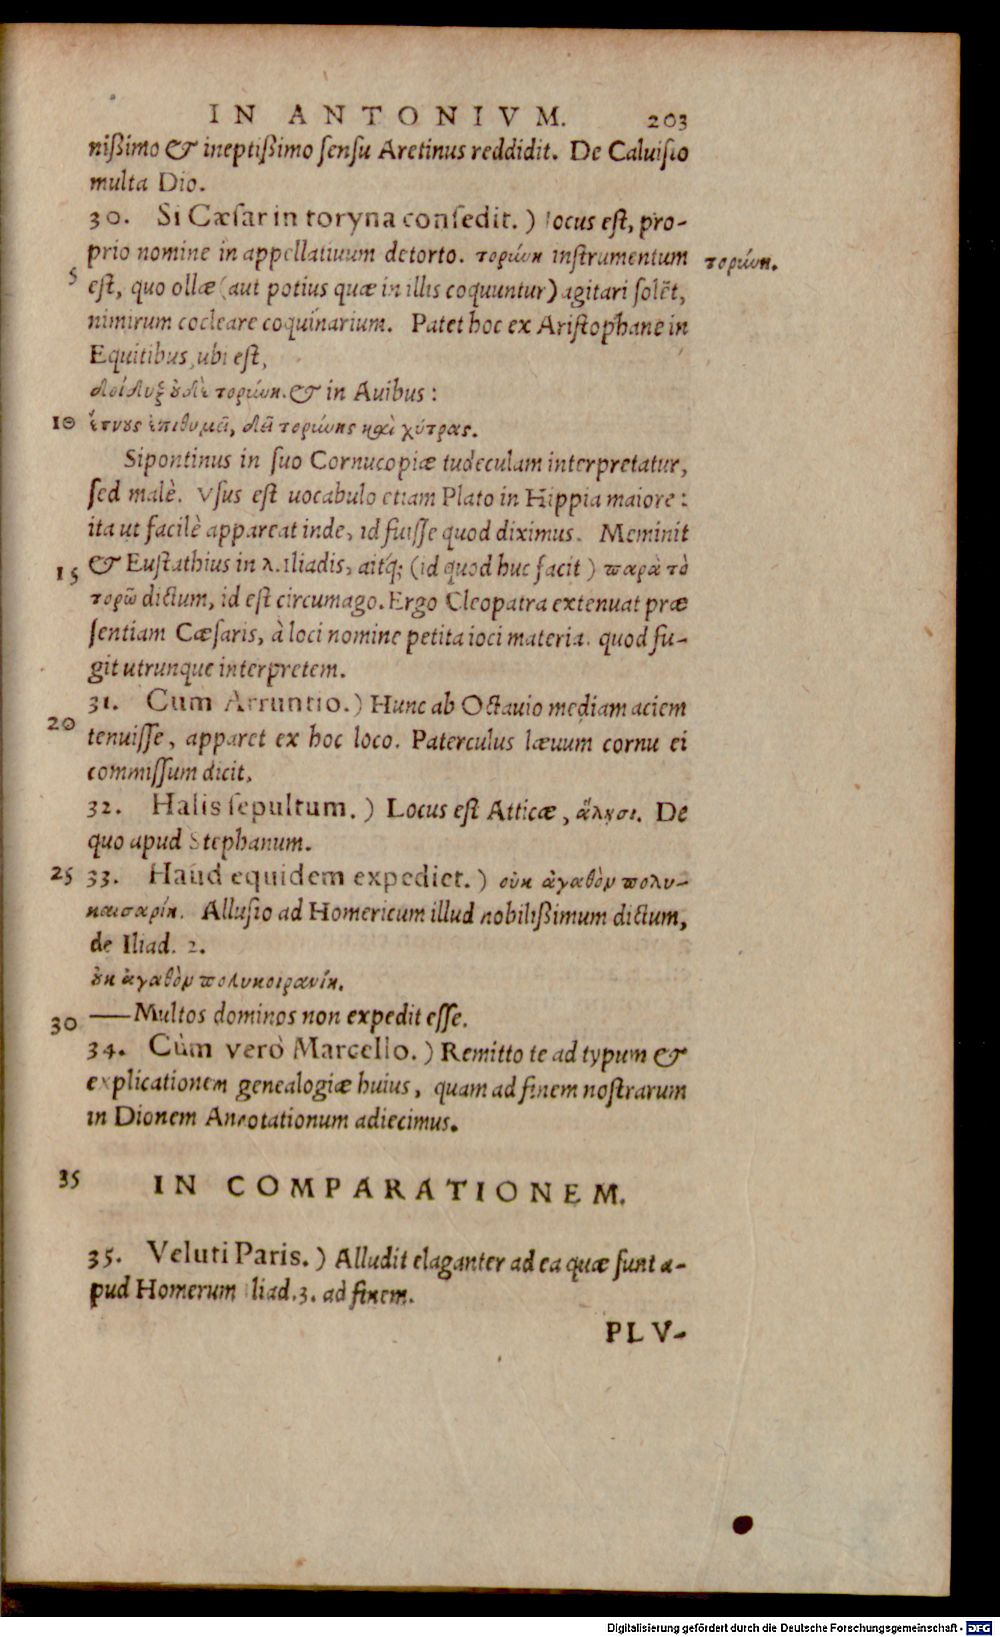 IN ANTONIVM. 203
nißimo & ineptißimo sensu Aretinus reddidit. De Caluisio
multa Dio.
30. Si Cæsar in toryna consedit.) Iocus est, pro-
prio nomine in appellatiuum detorto. τορύνη instrumentum τορύνη.
5 est, quo ollæ (aut potius quæ in illis coquuntur) agitari solẽt,
nimirum cocleare coquinarium. Patet hoc ex Aristophane in
Equitibus, ubi est,
δοίδυξ οὐδὲ τορύνη. & in Auibus:
10 ἔτνους ἐπιθυμεῖ, δεῖ τορύνης καὶ χύτρας.
Sipontinus in suo Cornucopiæ tudeculam interpretatur,
sed malè. Vsus est uocabulo etiam Plato in Hippia maiore:
ita ut facilè appareat inde, id fuisse quod diximus. Meminit
& Eustathius in λ. Iliadis, aitq́; (id quod huc facit) παρὰ τὸ
15 τορῶ dictum, id est circumago. Ergo Cleopatra extenuat præ
sentiam Cæsaris, à loci nomine petita ioci materia. quod fu-
git utrunque interpretem.
31. Cum Arruntio.) Hunc ab Octauio mediam aciem
20 tenuisse, apparet ex hoc loco. Paterculus læuum cornu ei
commissum dicit,
32. Halis sepultum.) Locus est Atticæ, ἅλησι. De
quo apud Stephanum.
25 33. Haud equidem expediet.) οὐκ ἀγαθὸν πολυ-
καισαρίη. Allusio ad Homericum illud nobilißimum dictum,
de Iliad. 2.
οὐκ ἀγαθὸν πολυκοιρανίη.
30 —Multos dominos non expedit esse.
34. Cùm verò Marcello.) Remitto te ad typum &
explicationem genealogiæ huius, quam ad finem nostrarum
in Dionem Annotationum adiecimus.
35 IN COMPARATIONEM.
35. Veluti Paris.) Alludit elaganter ad ea quæ sunt a-
pud Homerum Iliad. 3. ad finem.
PLV-
Digitalisierung gefördert durch die Deutsche Forschungsgemeinschaft - DFG